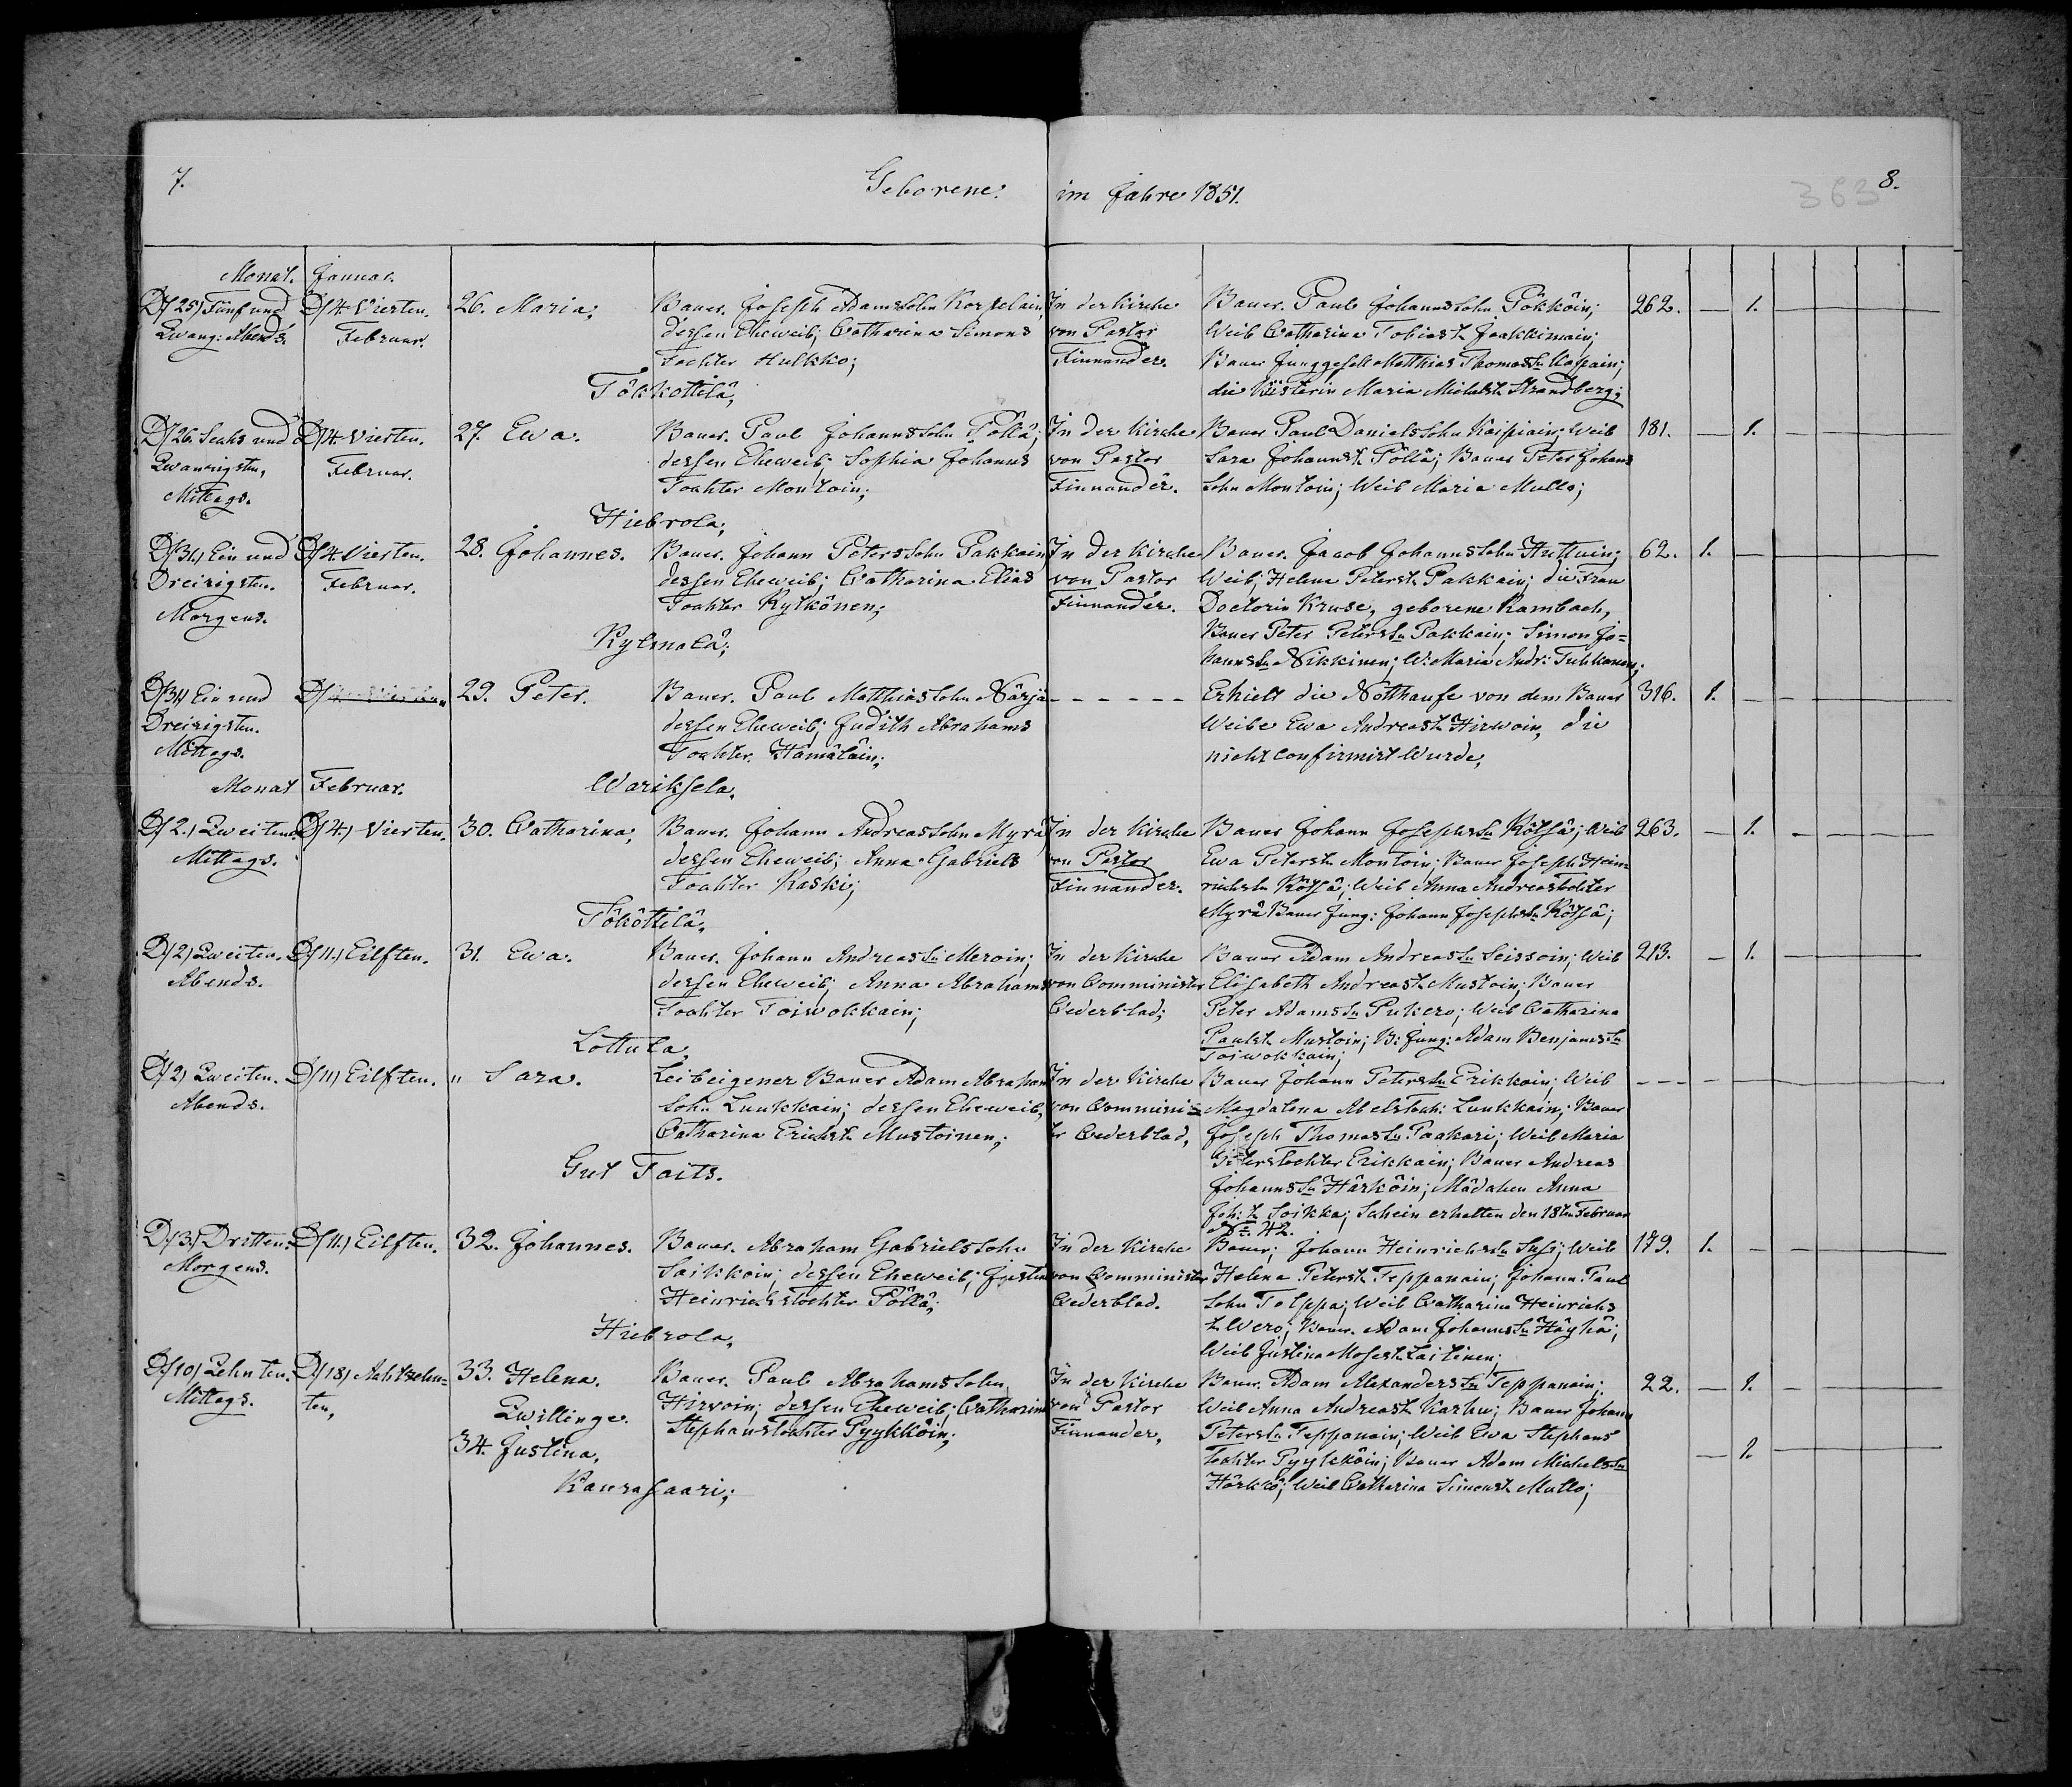 7.
Geborene
im Jahre 1851.
363
8.
Monat. Januar.
D/25) Fünf und
Zwanz: Abends.
D/4 Vierten.
Februar.
26. Maria;
Bauer. Joseph Adamssohn Korpelain,
dessen Eheweib; Catharina Simons
Tochter Hulkko;
Tökkottilä,
In der Kirche
von Pastor
Finnander.
Bauer. Paul Johannssohn Pökköin;
Weib Catharina Tobiast. Jaakkimain;
Bauer Junggesell Matthias Thomassn
die Küsterin Maria Michelst. Strandberg;
262. — 1.
D/26. Sechs und
Zwanzigsten,
Mittags.
D/4 Vierten.
Februar.
27. Ewa.
Bauer. Paul Johannssohn Pöllä;
dessen Eheweib; Sophia Johanns
Tochter Montoin;
Hiebrola;
In der Kirche
von Pastor
Finnander.
Bauer Paul Danielssohn Kaipiain; Weib
Sara Johannst. Pöllä; Bauer Peter Johans
sohn Montoin; Weib Maria Mullo;
181. — 1.
D/31) Ein und
Dreizigsten.
Morgens.
D/4 Vierten.
Februar.
28. Johannes.
Bauer. Johann Peterssohn Pakkain,
dessen Eheweib; Catharina Elias
Tochter Rytkönen;
Kylmälä;
In der Kirche
von Pastor
Finnander.
Bauer. Jacob Johannssohn Huttuin;
Weib; Helena Peterst. Pakkain; die Frau
Doctorin Kruse, geborene Rambach,
Bauer Peter Peterssn Pakkain; Simon Jo=
hannssn Nikkinen; W: Maria Andr: Tuhkanen;
62. 1. —
D/31) Ein und
Dreizigsten.
Mittags.
29. Peter.
Bauer. Paul Matthiassohn Närjä
dessen Eheweib; Judith Abrahams
Tochter. Hämäläin;
Wariksela.
- - - - - -
Erhielt die Nothtaufe von dem Bauer
Weibe Ewa Andreast. Hirwoin, die
nicht confirmirt wurde,
316. 1. —
Monat Februar.
D/2.) Zweiten.
Mittags.
D/4.) Vierten.
30. Catharina,
Bauer. Johann Andreassohn Myrä,
dessen Eheweib; Anna Gabriels
Tochter Kaski;
Tököttilä,
In der Kirche
von Pastor
Finnander.
Bauer Johann Josephssn Rötsä; Weib
Ewa Peterst. Montoin; Bauer Joseph Hein=
richssn Rötsä; Weib Anna Andreastochter
Myrä Bauer Jung: Johann Josephssn Rötsä;
263. — 1.
D/2) Zweiten.
Abends.
D/11.) Eilften.
31. Ewa.
Bauer. Johann Andreassn Meroin;
dessen Eheweib; Anna Abrahams
Tochter Toiwokkain;
Lottula.
In der Kirche
von Comminister
Cederblad;
Bauer Adam Andreassn Seissoin; Weib
Elisabeth Andreast. Mustoin; Bauer
Peter Adamssn Pukero; Weib Catharina
Paulst. Mustoin; B: Jung: Adam Benjamssn
Toiwokkain;
213. — 1.
D/2) Zweiten.
Abends.
D/11) Eilften.
" Sara.
Leibeigener Bauer Adam Abraham
sohn Luukkain; dessen Eheweib,
Catharina Erichst. Mustoinen;
Gut Taits.
In der Kirche
von Commini=
ter Cederblad,
Bauer Johann Peterssn Erikkain; Weib
Magdalena Abelstoch: Luukkain; Bauer
Joseph Thomassn Paakari; Weib Maria
Peterstochter Erikkain; Bauer Andreas
Johannssn Härköin; Mädchen Anna
Joh: t. Soikka; Schein erhalten den 18ten Februar
No 42.
- - -
D/3.) Dritten.
Morgens.
D/11.) Eilften.
32. Johannes.
Bauer. Abraham Gabrielssohn
Saikkoin; dessen Eheweib; Justin
Heinrichstochter Pöllä;
Hiebrola,
In der Kirche
von Comminister
Cederblad.
Bauer; Johann Heinrichssn Susi; Weib
Helena Peterst. Teppanain; Johann Paul
sohn Tolppa; Weib Catharina Heinrichs
t. Wero; Bauer. Adam Johannssn Häyhä;
Weib Justina Mosest. Laitinen;
179. 1. —
D/10) Zehnten.
Mittags.
D/18) Achtzehn=
ten,
33. Helena.
Zwillinge.
34. Justina.
Bauer. Paul Abrahamssohn
Hirvoin; dessen Eheweib; Catharina
Stephanstochter Pyykköin;
Kaurasaari;
In der Kirche
von Pastor
Finnander,
Bauer. Adam Alexanderssn Teppanain;
Weib Anna Andreast. Karhu; Bauer Johann
Peterssn Teppanain; Weib Ewa Stephans
Tochter Pyykköin; Bauer Adam Michelssn
Härkkö; Weib Catharina Simonst. Mullo;
22. — 1.
— 1.